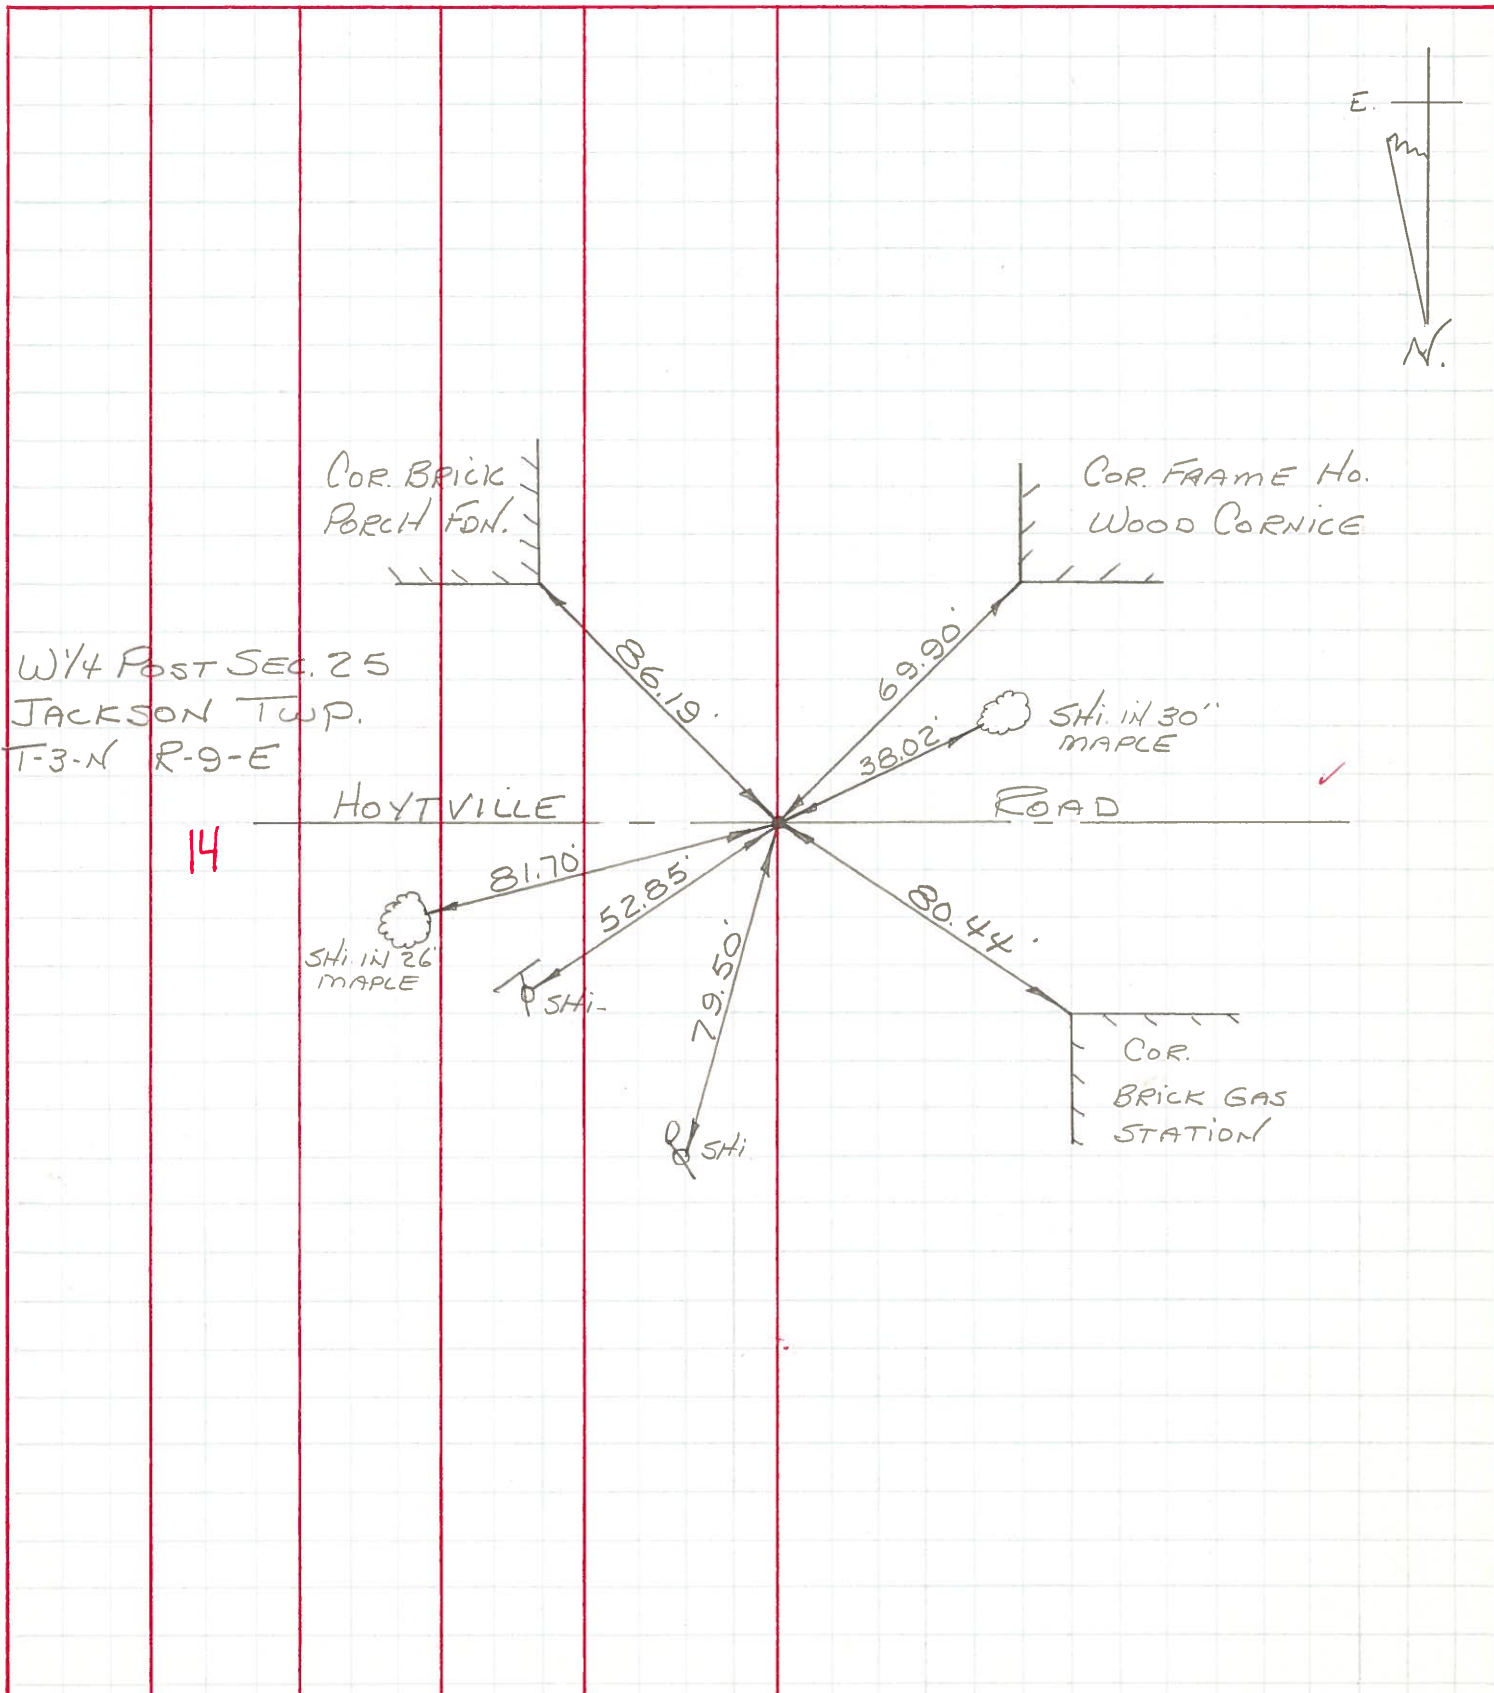 E.
N.
COR. BRICK
PORCH FDN.
COR. FRAME HO.
WOOD CORNICE
86.19'
69.90'
W 1/4 POST SEC. 25
JACKSON TWP.
T-3-N R-9-E
38.02'
SHi. iN 30"
MAPLE
HOYTVILLE ROAD
14
81.70'
52.85'
79.50'
80.44'
SHi. iN 26"
MAPLE
SHi-
SHi
COR.
BRiCK GAS
STATiON